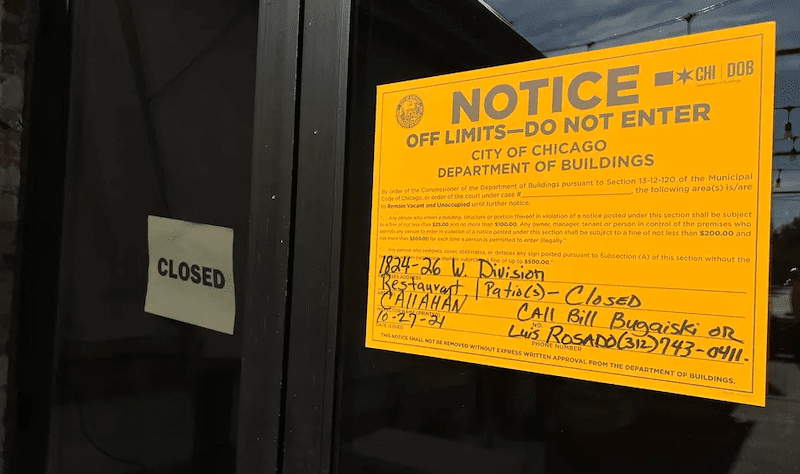 CLOSED
CHI DOB
Department of Buildings
NOTICE
OFF LIMITS—DO NOT ENTER
CITY OF CHICAGO
DEPARTMENT OF BUILDINGS
By order of the Commissioner of the Department of Buildings pursuant to Section 13-12-120 of the Municipal
Code of Chicago, or order of the court under case #, the following area(s) is/are
to Remain Vacant and Unoccupied until further notice.
"... Any person who enters a building, structure or portion thereof in violation of a notice posted under this section shall be subject
to a fine of not less than $25.00 and no more than $100.00. Any owner, manager, tenant or person in control of the premises who
permits any person to enter in violation of a notice posted under this section shall be subject to a fine of not less than $200.00 and
not more than $500.00 for each time a person is permitted to enter illegally."
"... Any person who removes, covers, obliterates, or defaces any sign posted pursuant to Subsection (A) of this section without the
shall be subject to a fine of up to $500.00."
1824-26 W. Division
ADDRESS
Restaurant / Patio(s) - CLOSED
CALLAHAN
CALL Bill Bugaiski OR
NAME (PRINTED)
10-27-21
Luis ROSADO (312) 743-0411.
DATE ISSUED
PHONE NUMBER
THIS NOTICE SHALL NOT BE REMOVED WITHOUT EXPRESS WRITTEN APPROVAL FROM THE DEPARTMENT OF BUILDINGS.